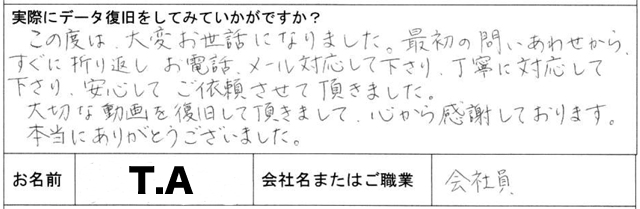 実際にデータ復旧をしてみていかがですか？
この度は、大変お世話になりました。最初の問いあわせから、
すぐに折り返し お電話、メール対応して下さり、丁寧に対応して
下さり、安心して ご依頼させて頂きました。
大切な動画を復旧して頂きまして、心から感謝しております。
本当にありがとうございました。
お名前 T.A 会社名またはご職業 会社員